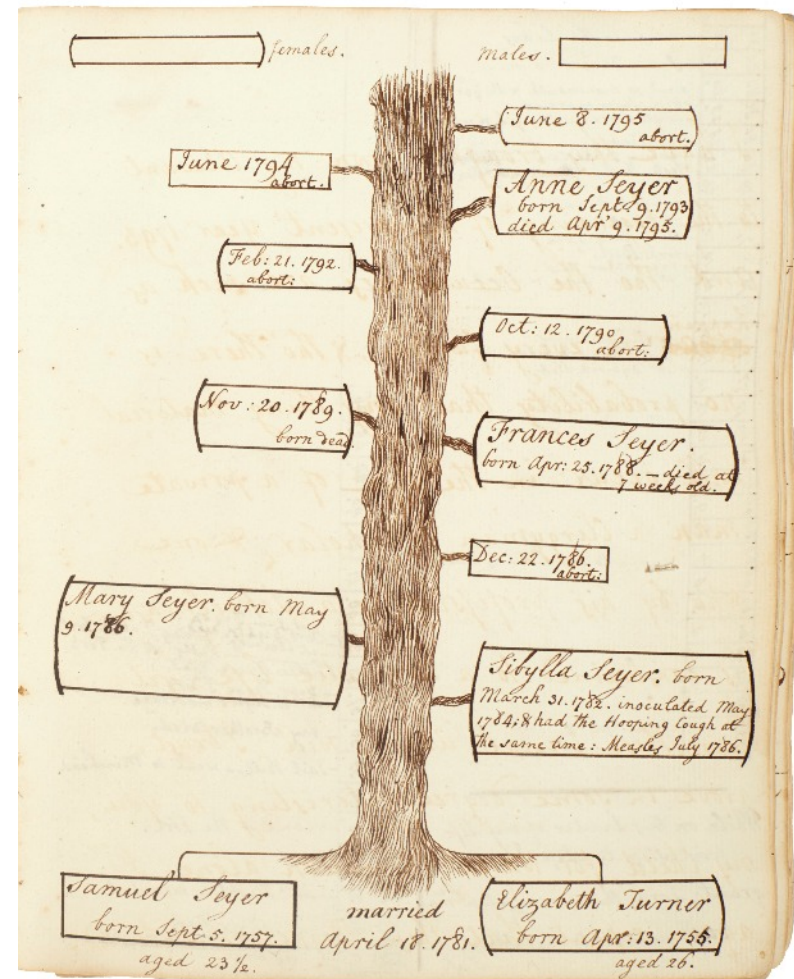 females.
Males.
June 8. 1795
abort.
June 1794
abort.
Anne Seyer
born Sept. 9. 1793
died Apr' 9. 1795.
Feb: 21. 1792.
abort:
Oct: 12. 1790
abort:
Nov: 20. 1789.
born dead
Frances Seyer.
born Apr: 25. 1788. — died at
7 weeks old.
Dec: 22. 1786.
abort:
Mary Seyer. born May
9. 1786.
Sibylla Seyer. born
March 31. 1782. inoculated May
1784; & had the Hooping Cough at
the same time: Measles July 1786.
Samuel Seyer
born Sept. 5. 1757.
aged 23½.
married
April 18. 1781.
Elizabeth Turner
born Apr: 13. 1755.
aged 26.